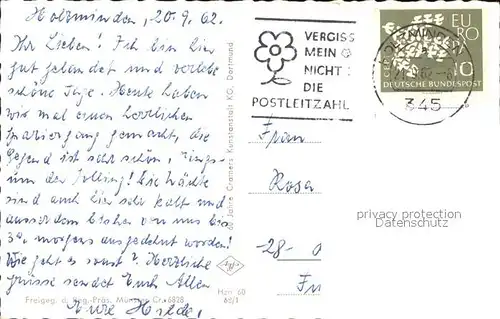 Holzminden, 20.9.62.
Ihr Lieben! Ich bin hier
gut gelandet und verlebe
schöne Tage. Heute haben
wir mal einen herrlichen
gemacht, die
Gegend ist sehr schön, rings-
um der Solling! Die Nächte
sind auch hier sehr kalt und
ausserdem bisher von uns bis
3h morgens ausgedehnt worden!
Wie geht es sonst? Herzliche
Grüsse sendet Euch Allen
Eure Hilde,
Freigeg. d. Reg.-Präs. Münster Cr. 6828
60 Jahre Cramers Kunstanstalt KG, Dortmund
Hzn 60
62/1
VERGISS
MEIN
NICHT
DIE
POSTLEITZAHL
HOLZMINDEN
345
EURO
10
DEUTSCHE BUNDESPOST
Frau
Rosa
28-
privacy protection
Datenschutz